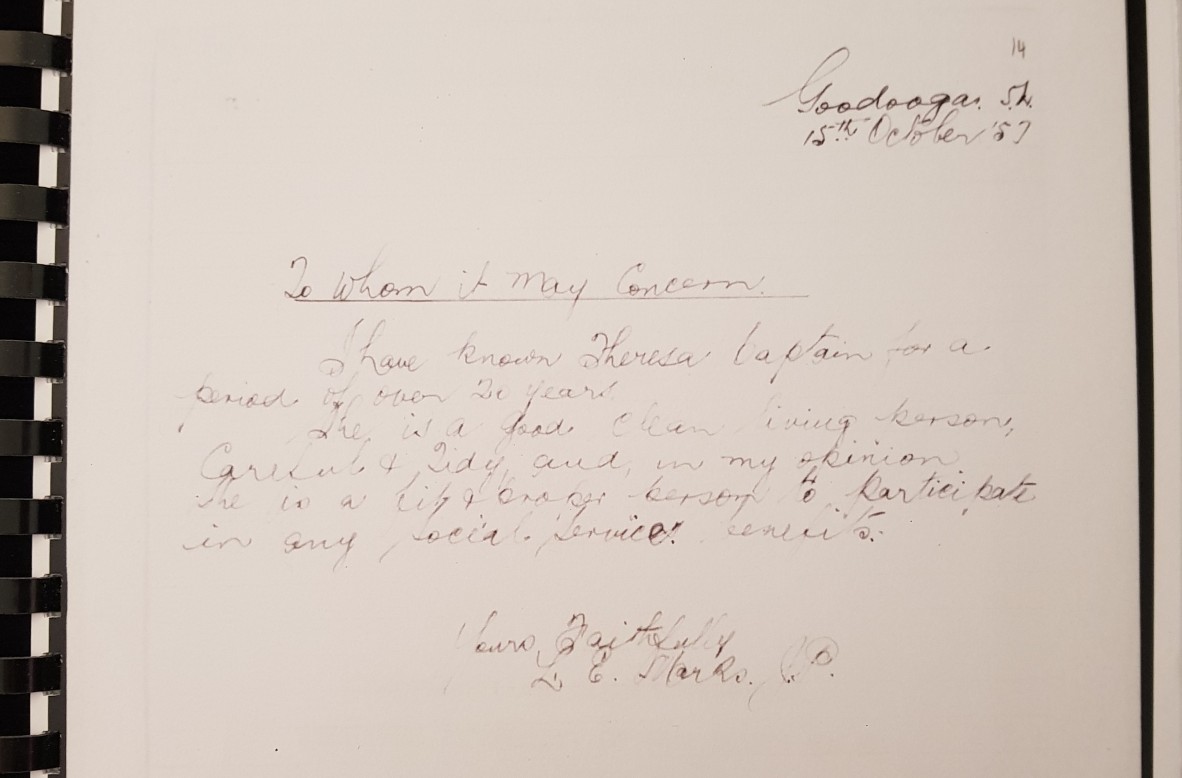 14
Goodooga.
15th October '57
To Whom it May Concern.
I have known Theresa Captain for a
period of over 20 years.
She is a good clean living person,
Careful & Tidy, and, in my opinion
she is a fit & proper person to participate
in any social service benefits.
Yours Faithfully
E. Marks. J.P.